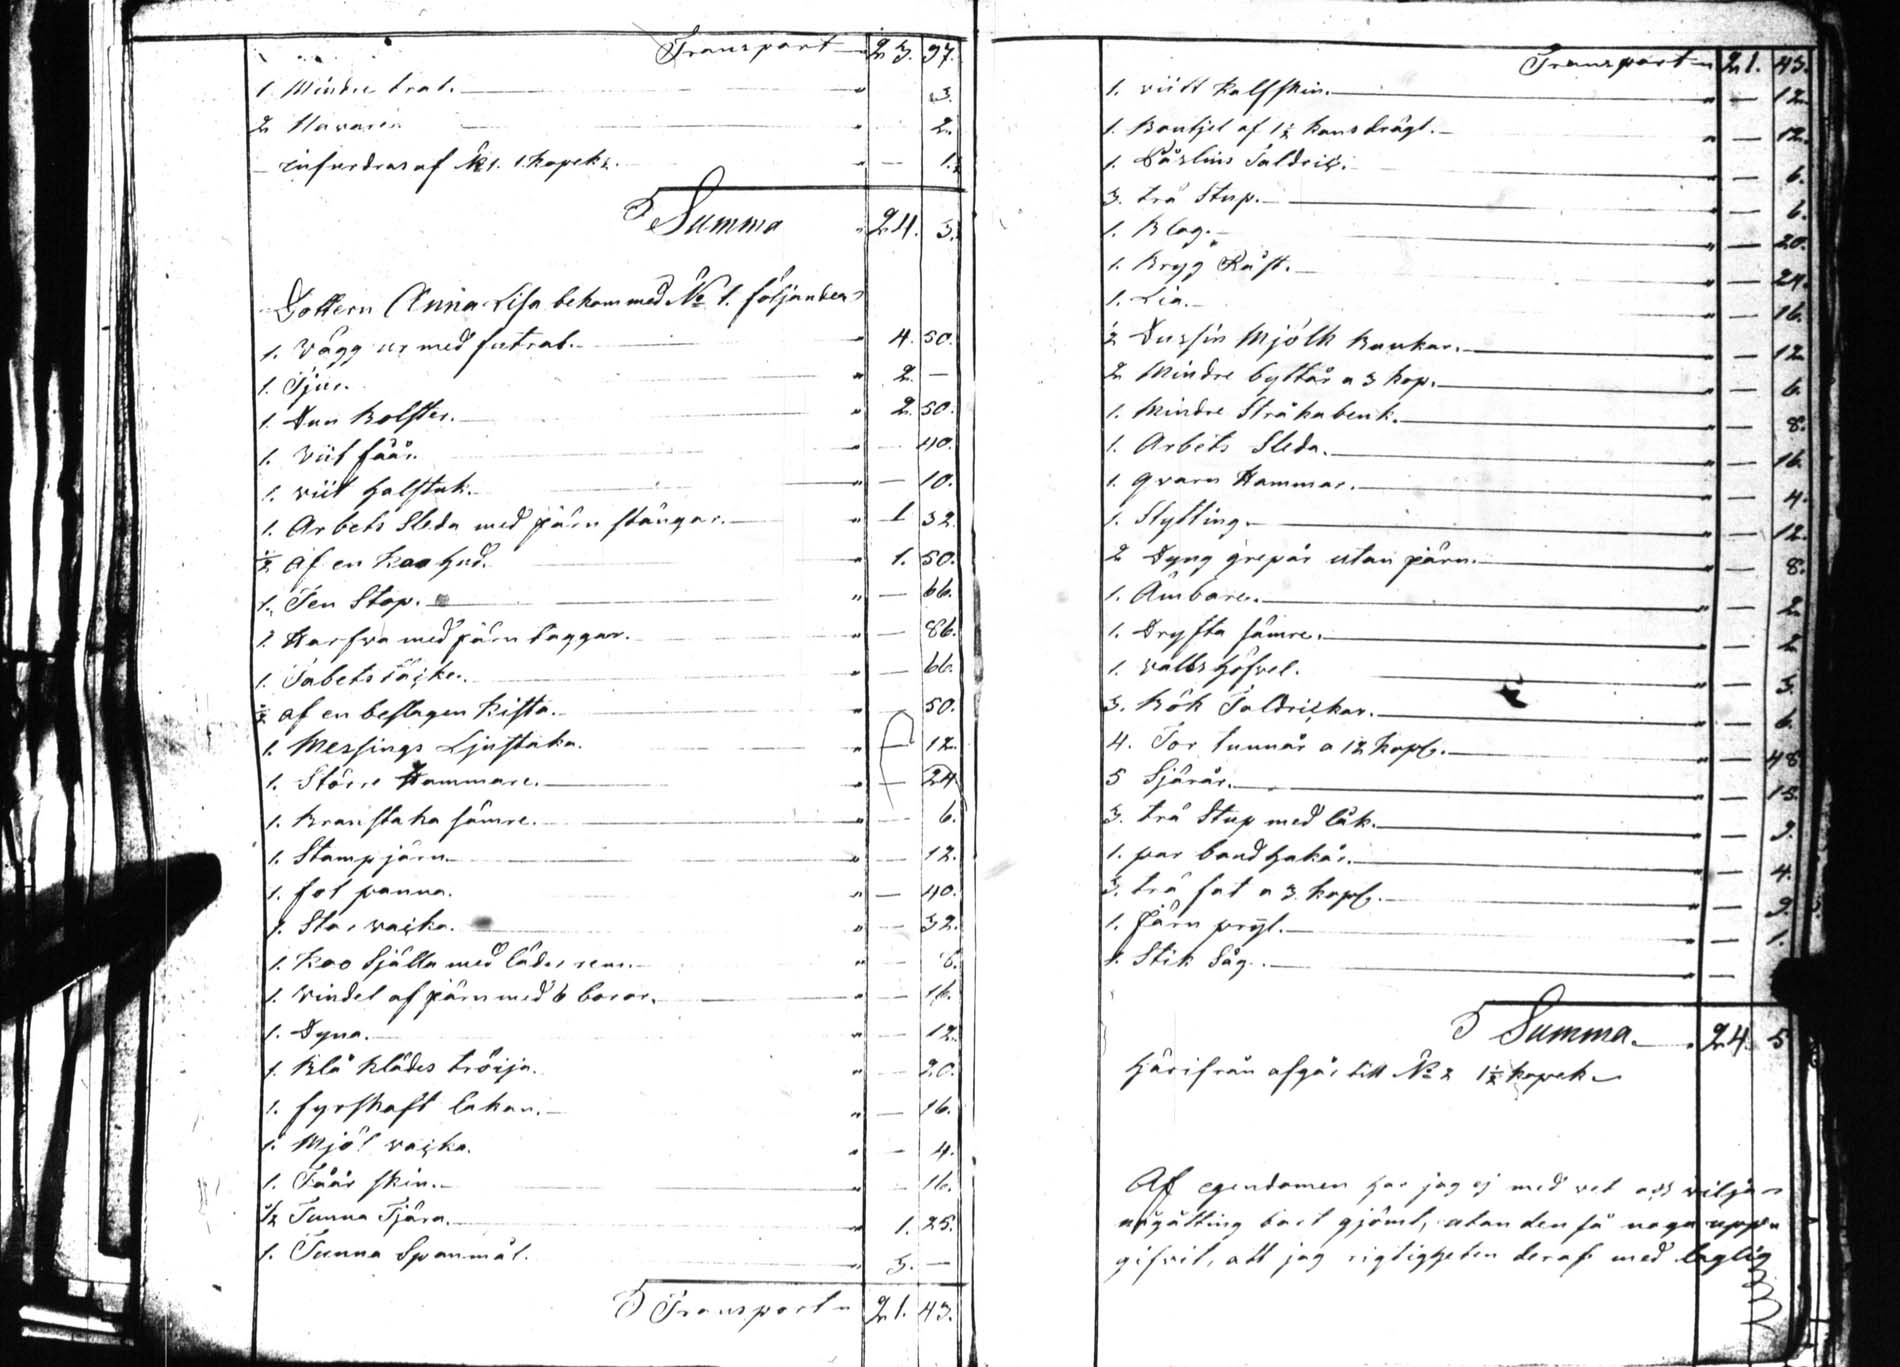 Transport 23. 97.
1. Mindre trat. " 3.
2 Navaren " 2.
- infordras af No 1. 1. kopek " — 1.½
Summa " 24. 3.
Dottern Anna Lisa bekom med No 1. följande
1. Vägg ur med futral. " 4. 50.
1. Tjur. " 2. —
1. Dun Bolster. " 2. 50.
1. Viit fåår. " — 40.
1. viit Halstuk. " — 10.
1. Arbets Sleda med järn stänger. " 1 32.
½ af en Koo hud. " 1. 50.
1. Ten Stop. " — 66.
1. Harfva med järn taggar. " — 86.
1. Tabets täcke. " — 66.
½ af en beslagen Kista. " — 50.
1. Messings Ljustaka. " — 12.
1. Större Hammare. " — 24
1. Branstaka sämre. " — 6.
1. Stamp järn. " — 12.
1. fot panna. " — 40.
1. Stor väcka. " — 32.
1. Koo Själla med läder rem. " — 6.
1. Vindel af järn med 6 borar. " — 16.
1. Dyna. " — 12.
1. Blå Klädes tröija. " — 20.
1. fyrskaft Lakan. " — 16.
1. Mjöl väcka. " — 4.
1. Fåår skin. " — 16.
½ Tunna Tjära. " 1. 25.
1. Tunna Spanmål. " 3. —
Transport 21. 43.
Transport 21. 43.
1. viitt Kalfskin. " — 12.
1. Bautjel af 1½ kans drägt. " — 12.
1. Påslins Taldrik. " — 6.
3. trä Stup. " — 6.
1. Klag. " — 20.
1. Bryg Räst. " — 24.
1. Lia. " — 16.
½ Dussin Mjölk Bunkar. " — 12.
2 Mindre byttår a 3 kop. " — 6.
1. Mindre Stråkabenk. " — 8.
1. Arbets Sleda. " — 16.
1. qvarn Hammar. " — 4.
1. Slytting. " — 12.
2 Dyng grepar utan järn. " — 8.
1. Ämbare. " — 2.
1. Dryfta sämre. " — 2
1. valbs Höfvel. " — 3.
3. Bök Taldrickar. " — 6.
4. Tor tunnår a 12 kop. " — 48
5 Sjärår. " — 15.
3. trä Stup med låk. " — 9.
1. par band hakår. " — 4.
3. trä fat a 3 kop. " — 9.
1. Järn pryl. " — 1.
1. Stik Såg. " —
Summa. 24. 5
Härifrån afgår till No 2 1½ kopek
Af egendomen har jag ej med vet och vilja
någåtting bort gjömt, utan den så noga upp
gifvit, att jag rigtigheten deraf med laglig